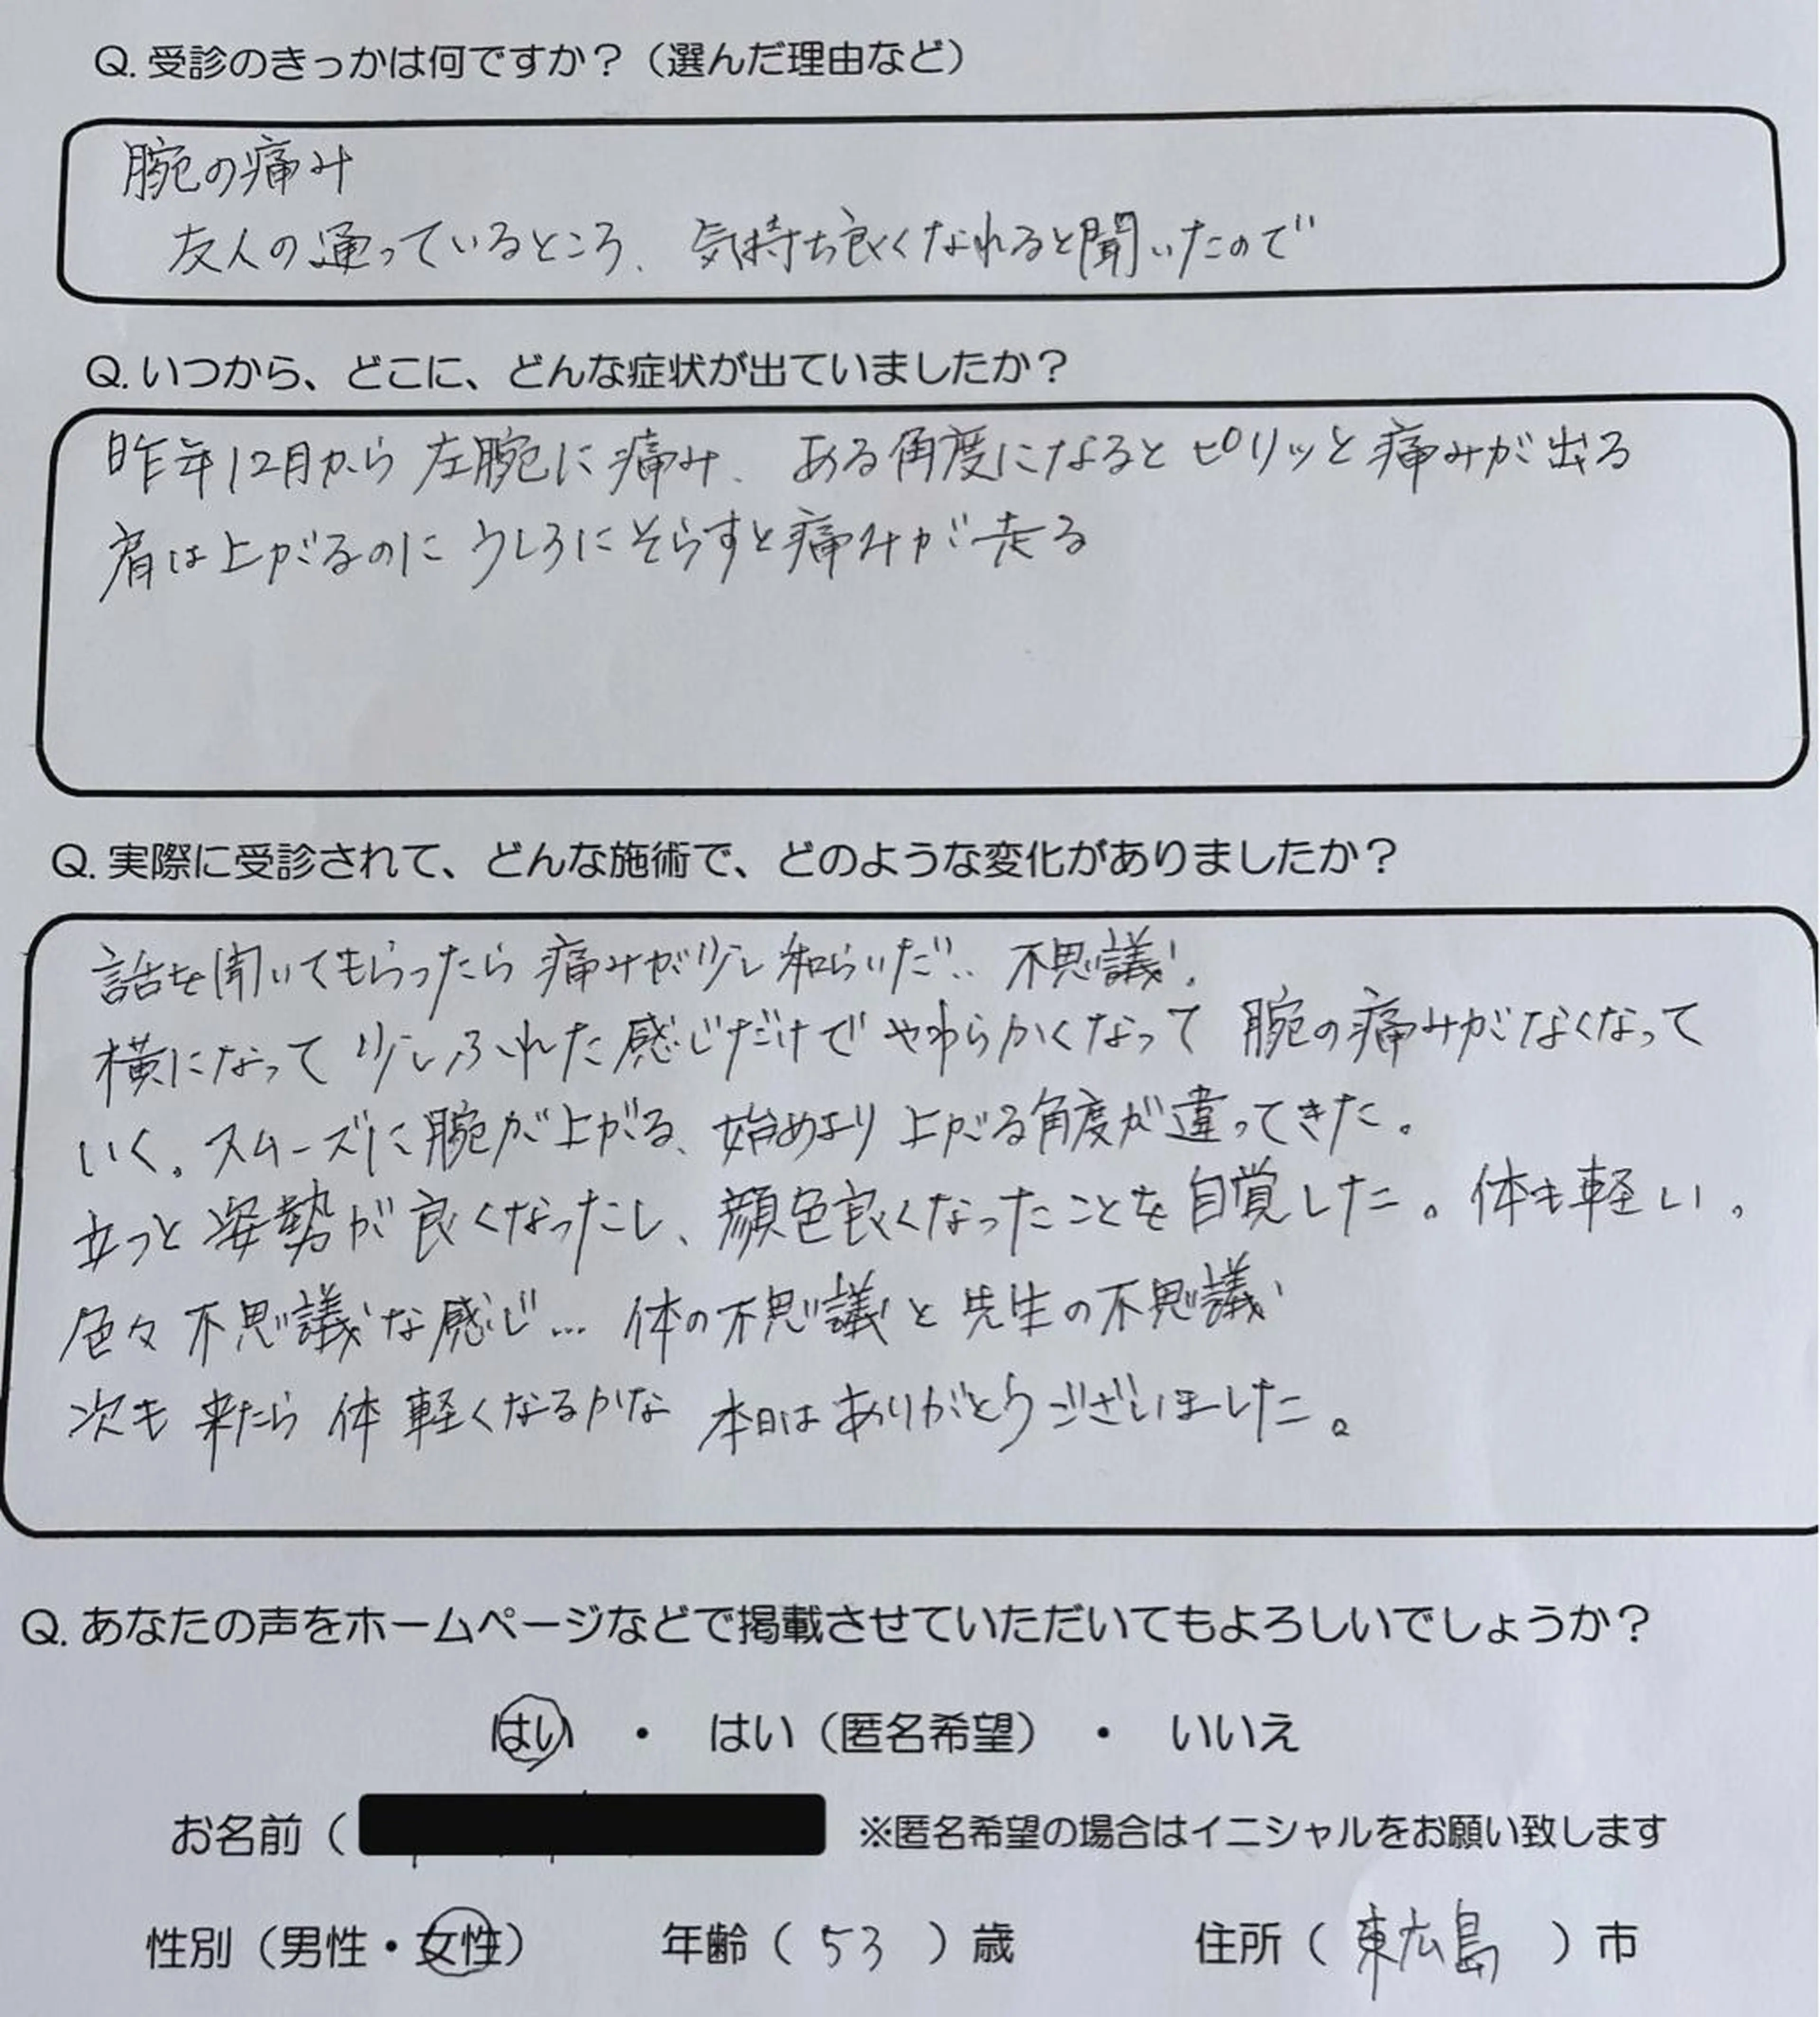 Q. 受診のきっかは何ですか？（選んだ理由など）
腕の痛み
友人の通っているところ、気持ち良くなれると聞いたので
Q. いつから、どこに、どんな症状が出ていましたか？
昨年12月から左腕に痛み、ある角度になるとピリッと痛みが出る
肩は上がるのにうしろにそらすと痛みが走る
Q. 実際に受診されて、どんな施術で、どのような変化がありましたか？
話を聞いてもらったら痛みが少し和らいだ‥不思議！
横になって少しふれた感じだけでやわらかくなって腕の痛みがなくなって
いく。スムーズに腕が上がる、始めより上がる角度が違ってきた。
立つと姿勢が良くなったし、顔色良くなったことを自覚した。体も軽い。
色々不思議な感じ…体の不思議と先生の不思議
次も来たら体軽くなるかな 本日はありがとうございました。
Q. あなたの声をホームページなどで掲載させていただいてもよろしいでしょうか？
はい ・ はい（匿名希望） ・ いいえ
お名前（ ※匿名希望の場合はイニシャルをお願い致します
性別（男性・女性） 年齢（ 53 ）歳 住所（ 東広島 ）市